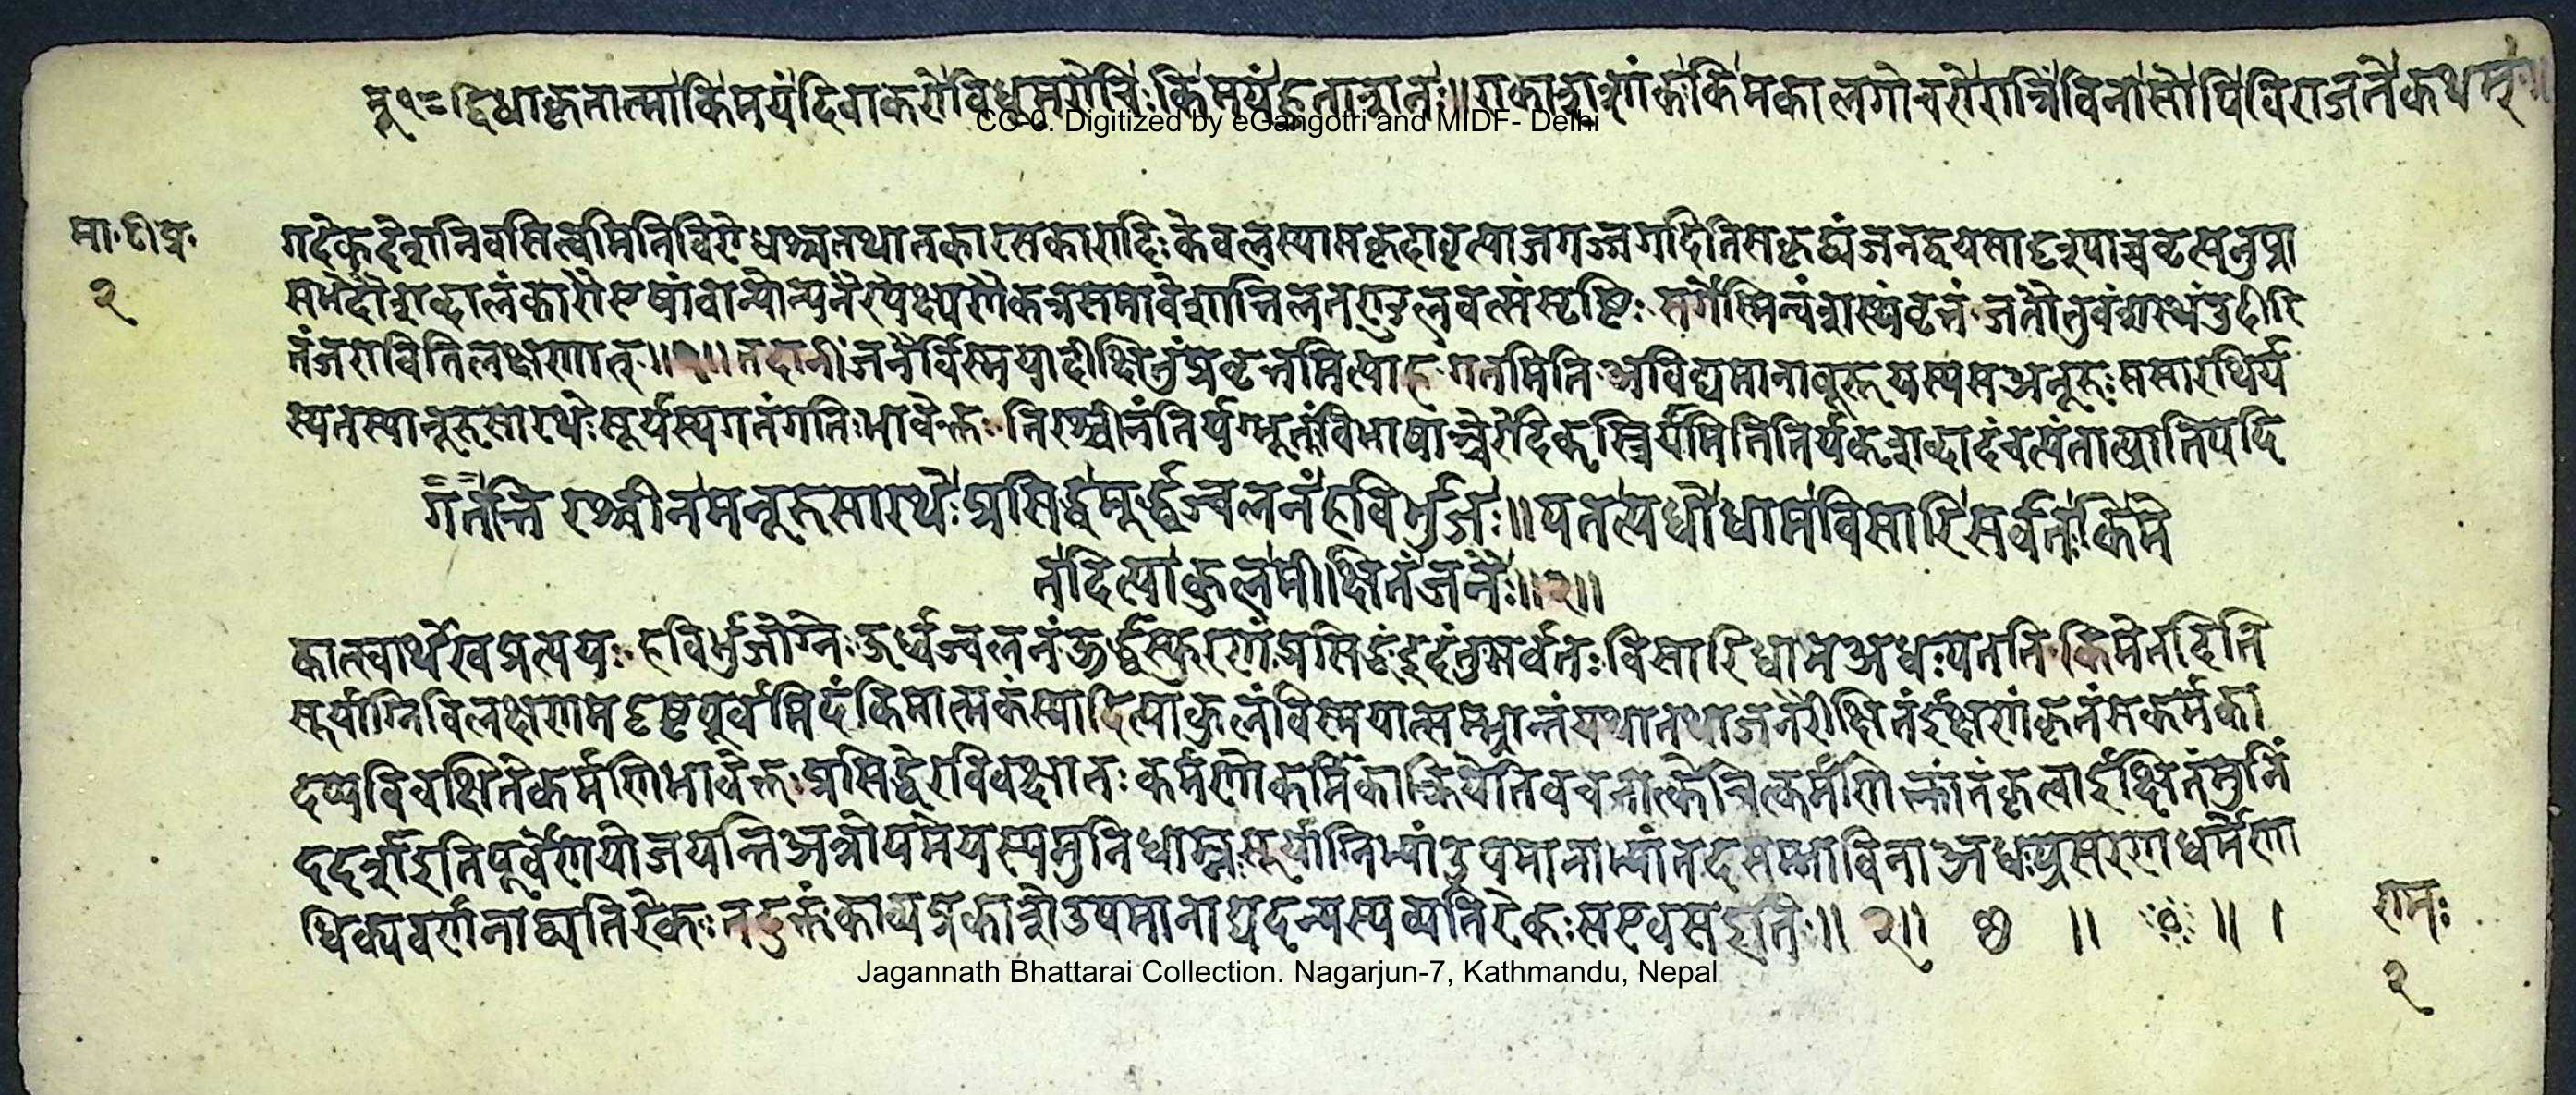 मू १= द्विधाकृतात्माकिमयंदिवाकरोविधूमरोचिःकिमयंहुताशनः॥ गकाशाशांकःकिमकालगोचरोरात्रिंविनासोपिविराजतेकथम्॥
CC-0. Digitized by eGangotri and MIDF- Delhi
मा॰टी॰प्र॰
२
गदेकदेशनिवसितुमितिविरोधश्चतथातकारसकारादिःकेवलस्यासकृदावृत्याजगज्जगदितिसकृद्व्यंजनद्वयसादृश्याच्चवृत्यनुप्रा
सभेदौशब्दालंकारौएषांचान्योन्यनैरपेक्ष्येणैकत्रसमावेशात्तिलतण्डुलवत्संसृष्टिः सर्गेस्मिन्वंशस्थंवृत्तं जतौतुवंशस्थमुदीरि
तंजरावितिलक्षणात्॥१॥तदानींजनैर्विस्मयादीक्षितुंप्रवृत्तमित्याह गतमिति अविद्यमानावूरूयस्यसअनूरुः ससारथिर्य
स्यतस्यानूरुसारथेःसूर्यस्यगतंगतिःभावेक्तः तिरश्चीनंतिर्यग्भूतंविभाषाञ्चेरदिक्स्त्रियामितितिर्यक्शब्दादंचत्यंतात्प्रातिपदि
गतंति रश्चीनमनूरुसारथेःप्रसिद्धमूर्द्ध्वज्वलनंहविर्भुजः॥पतत्यधोधामविसारिसर्वतःकिमे
तदित्याकुलमीक्षितंजनैः॥२॥
कात्स्वार्थेखप्रत्ययः हविर्भुजोग्नेःऊर्ध्वज्वलनंऊर्द्ध्वस्फुरणंप्रसिद्धंइदंतुसर्वतःविसारिधामअधःपतति किमेतदिति
सूर्याग्निविलक्षणमदृष्टपूर्वमिदंकिमात्मकंस्यादित्याकुलंविस्मयात्सम्भ्रान्तंयथातथाजनैरीक्षितंईक्षणंकृतंसकर्मका
दप्यविवक्षितेकर्मणिभावेक्तःप्रसिद्धेरविवक्षातःकर्मणोकर्मिकाक्रियेतिवचनात्केचित्कर्मणिक्तांतंकृत्वाईक्षितंमुनिं
ददर्शइतिपूर्वेणयोजयन्तिअत्रोपमेयस्यमुनिधाम्नःसूर्याग्निभ्यांउपमानाभ्यांतदसम्भाविनाअधःप्रसरणधर्मेणा
धिक्यवर्णनाद्व्यतिरेकः तदुक्तंकाव्यप्रकाशेउपमानाद्यदन्यस्यव्यतिरेकःसएवसइति॥ २॥ ॥ ॥ ।
राम॰
२
Jagannath Bhattarai Collection. Nagarjun-7, Kathmandu, Nepal